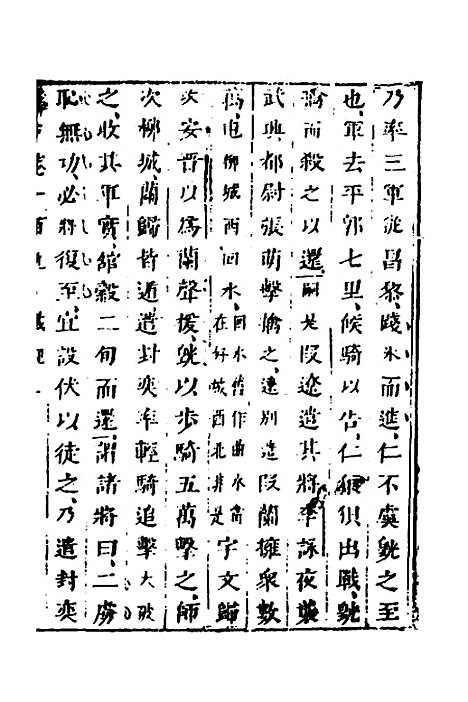 乃率三軍從昌黎踐氷而進仁不虞皝之至
也軍去平郭七里候騎以告仁狼狽出戰皝
擒而殺之以還嗣是段遼遣其將李詠夜襲
武興都尉張萌擊擒之遼別遣段蘭擁衆數
萬屯柳城西回水回水舊作曲水當在好城西北非是宇文歸
攻安晋以爲蘭聲援皝以步騎五萬擊之師
次柳城蘭歸皆遁遣封奕率輕騎追擊大破
之收其軍實館榖二旬而還謂諸將曰二虜
恥無功必將復至宜設伏以徒之乃遣封奕